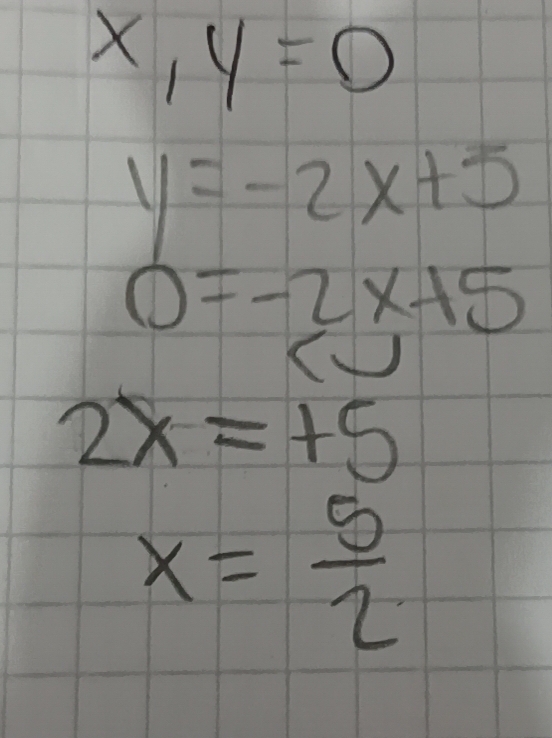 x, y = 0
y = -2x+5
0 = -2x+5
2x = +5
x = 5/2